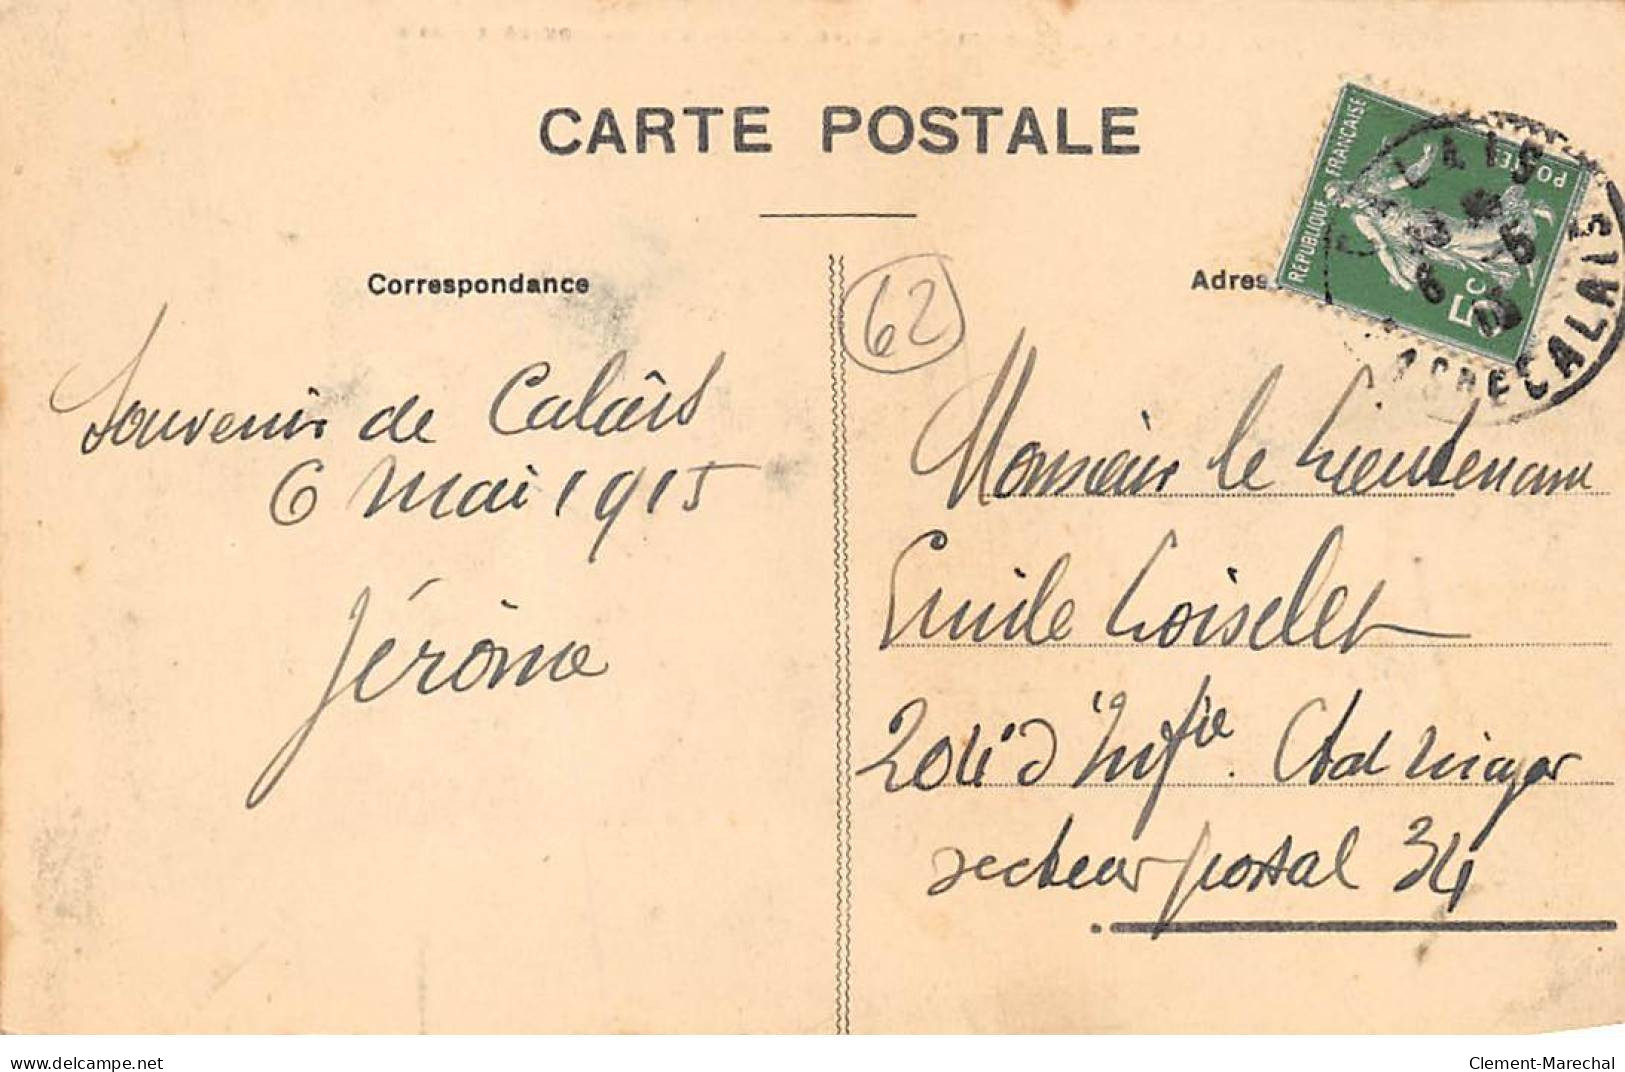 CARTE POSTALE
Correspondance
Adres
62
REPUBLIQUE FRANCAISE
POSTES
5c
CALAIS
6 5
PAS DE CALAIS
Souvenir de Calais
6 Mai 1915
Jérôme
Monsieur le Lieutenant
Emile Loiselet
204e d'Infie. Etat major
secteur postal 34
www.delcampe.net
Clement-Marechal